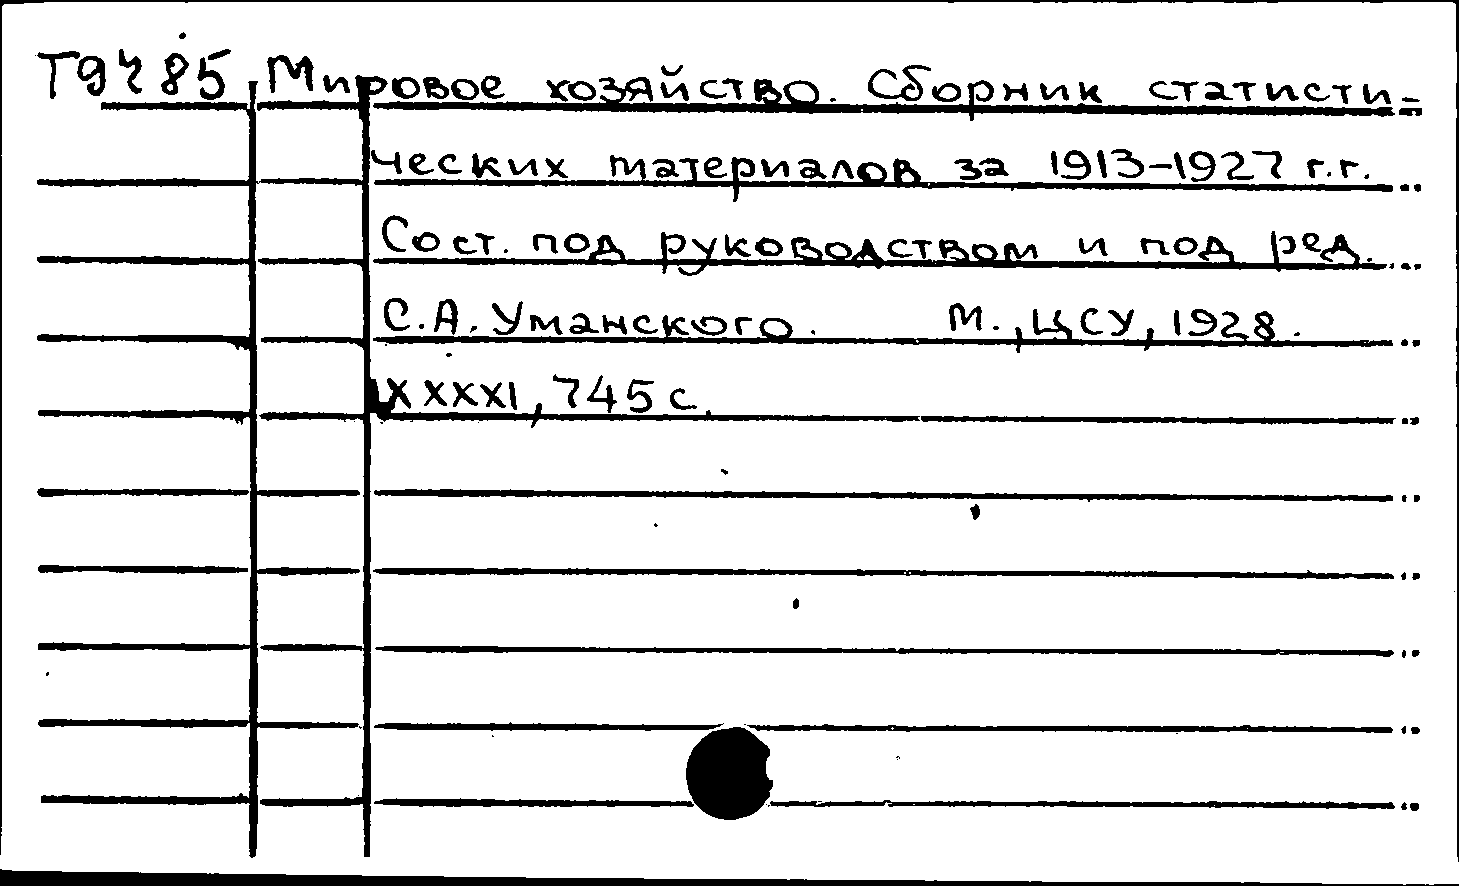 Т9485 Мировое хозяйство. Сборник статисти-
ческих материалов за 1913-1927 г.г.
Сост. под руководством и под ред.
С.А. Уманского. М., ЦСУ, 1928.
XXXXI, 745 с.